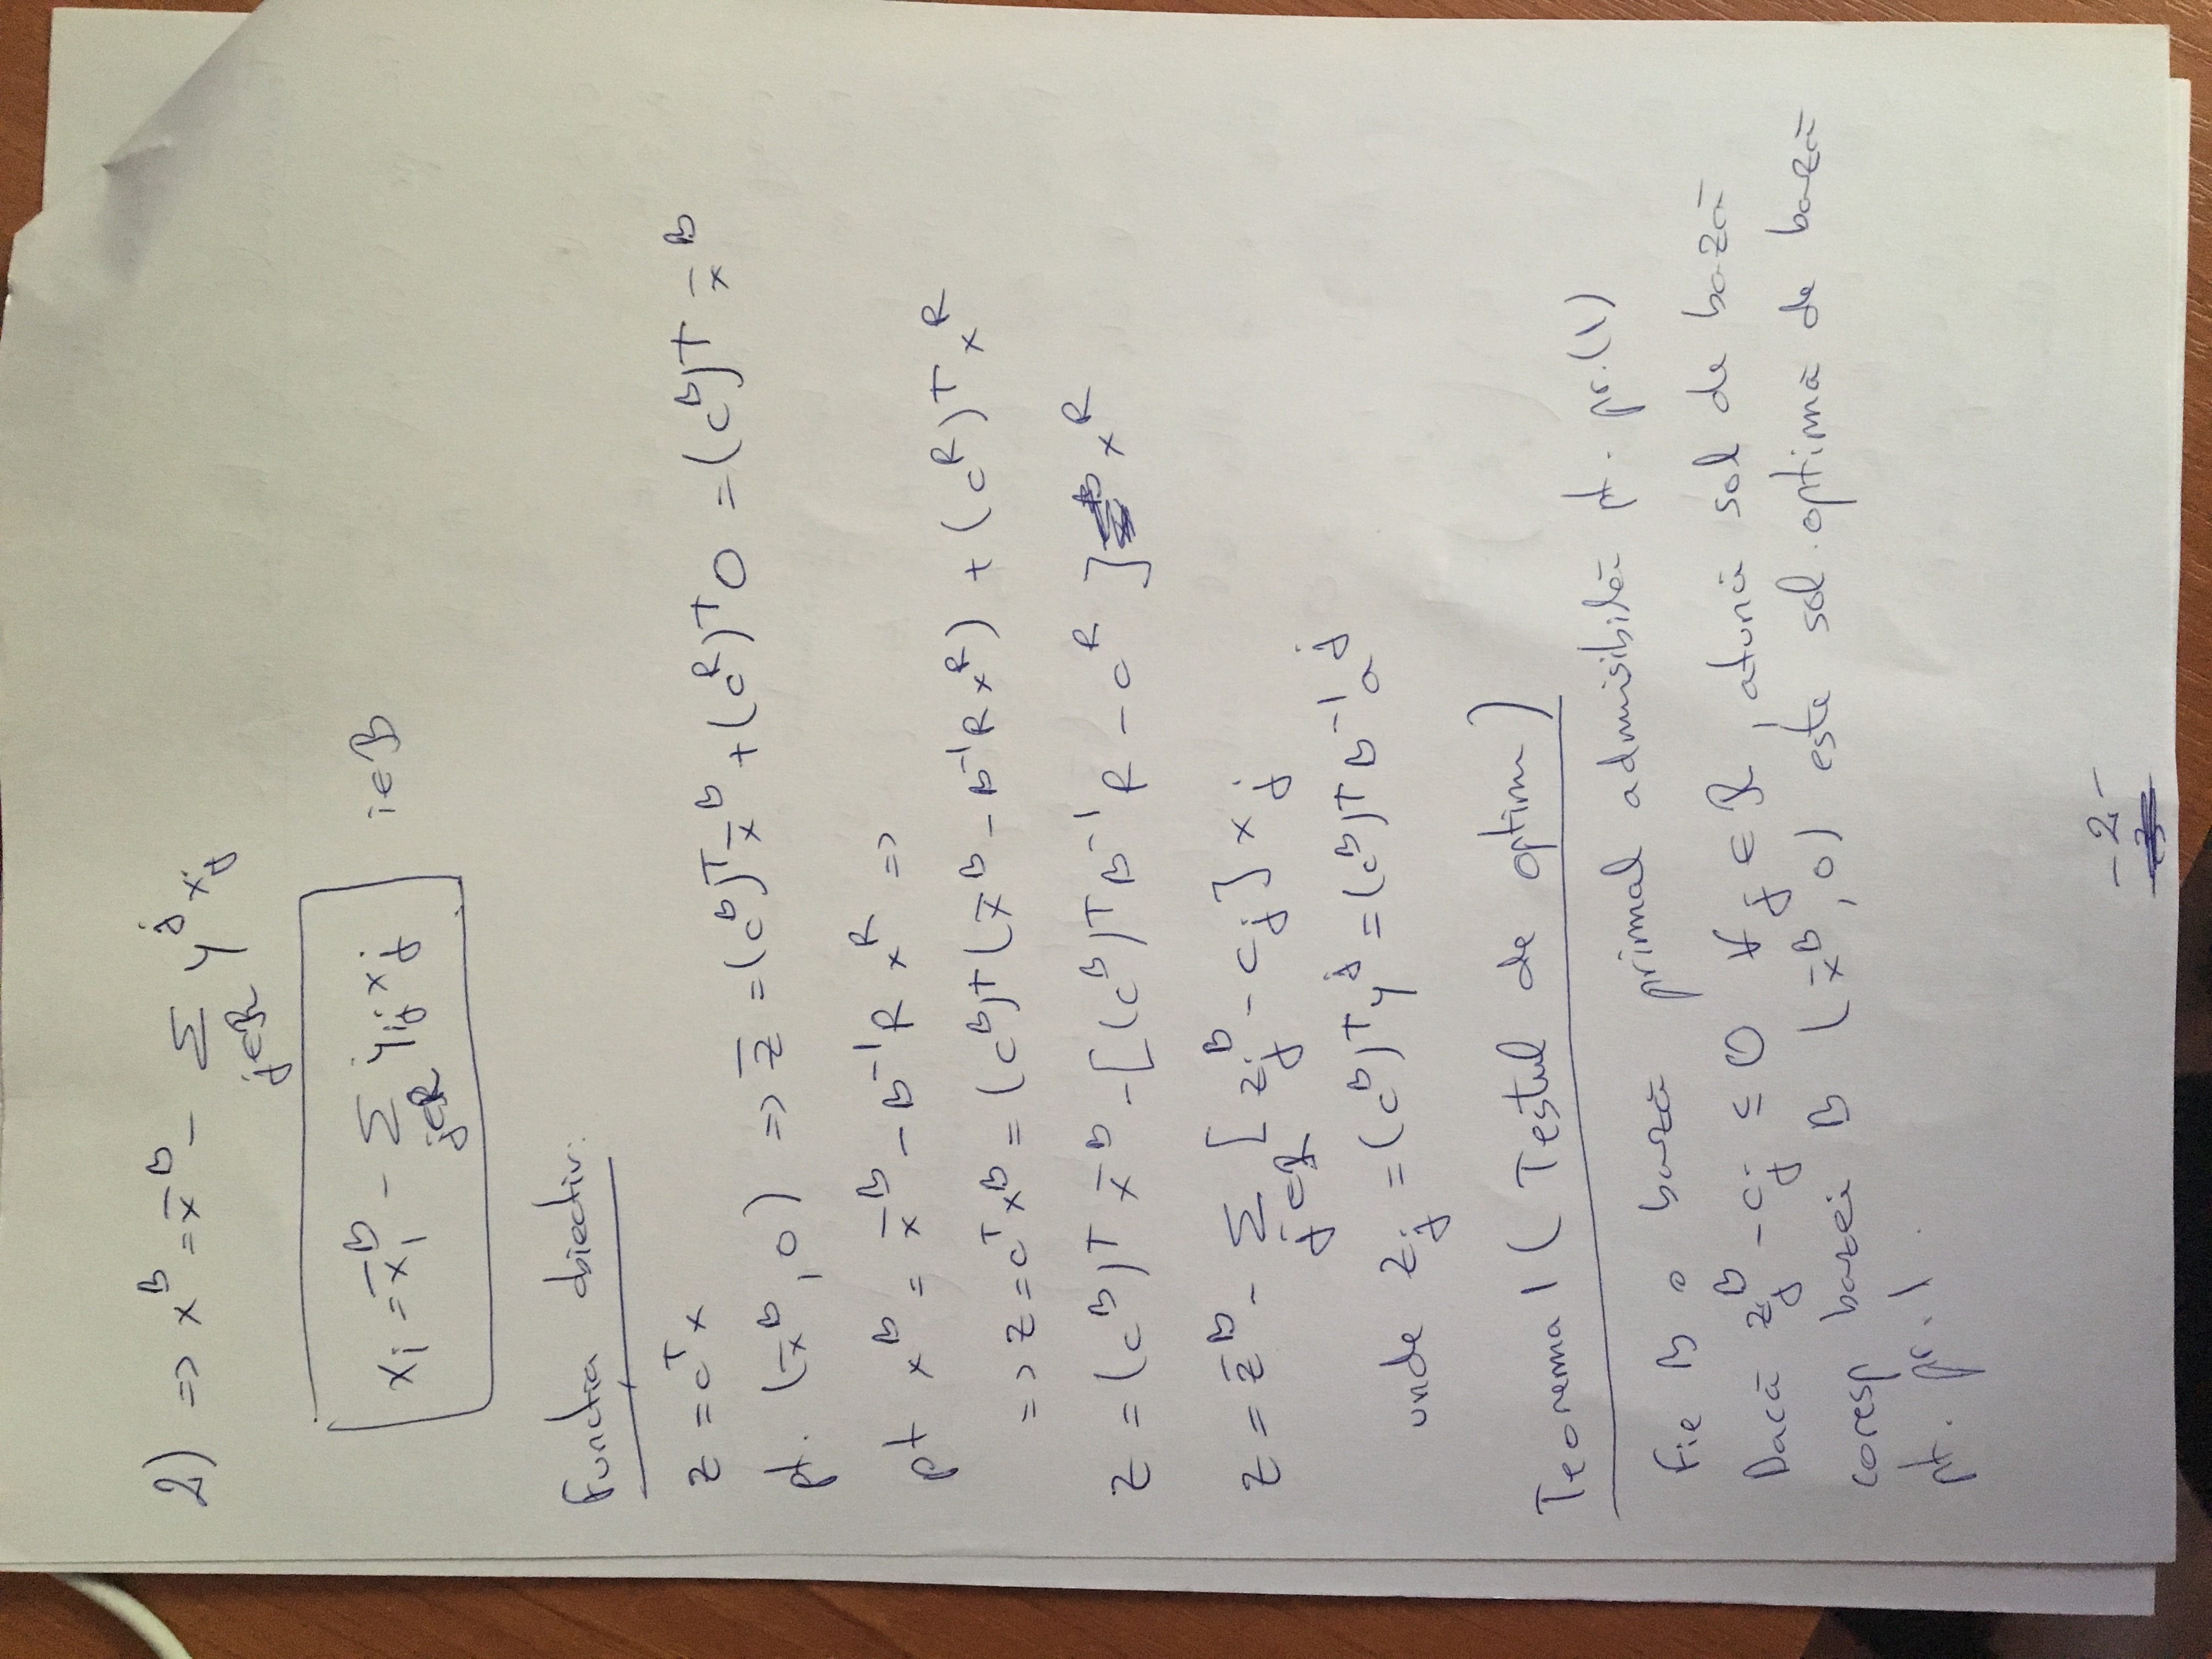 2) => x^B = x̄^B - Σ_{j∈R} y^j x_j
x_i = x̄_i^B - Σ_{j∈R} y_ij x_j   i∈B
Funcția obiectiv:
z = c^T x
pt. (x̄^B, 0) => z̄ = (c^B)^T x̄^B + (c^R)^T 0 = (c^B)^T x̄^B
pt x^B = x̄^B - B^-1 R x^R =>
=> z = c^T x^B = (c^B)^T (x̄^B - B^-1 R x^R) + (c^R)^T x^R
z = (c^B)^T x̄^B - [(c^B)^T B^-1 R - c^R] x^R
z = z̄^B - Σ_{j∈R} [z_j^B - c_j] x_j
unde z_j = (c^B)^T y^j = (c^B)^T B^-1 a^j
Teorema 1 (Testul de optim)
Fie B o bază primal admisibilă pt. pr.(1)
Dacă z_j^B - c_j ≤ 0 ∀ j ∈ R, atunci sol de bază
coresp bazei B (x̄^B, 0) este sol. optimă de bază
pt. pr. 1.
-2-